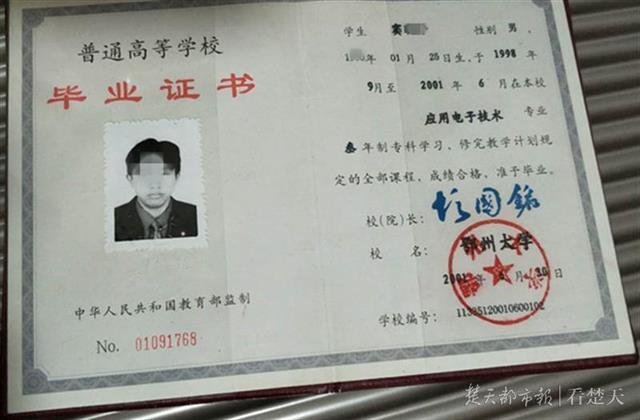 普通高等学校
毕业证书
中华人民共和国教育部监制
No. 01091768
学生 窦 性别 男,
年 01 月 25日生,于 1998 年
9月至 2001 年 6 月在本校
应用电子技术 专业
叁年制专科学习,修完教学计划规
定的全部课程,成绩合格,准予毕业。
校(院)长:
校 名: 鄂州大学
2001 年 月 30 日
学校编号:
楚天都市报 | 看楚天